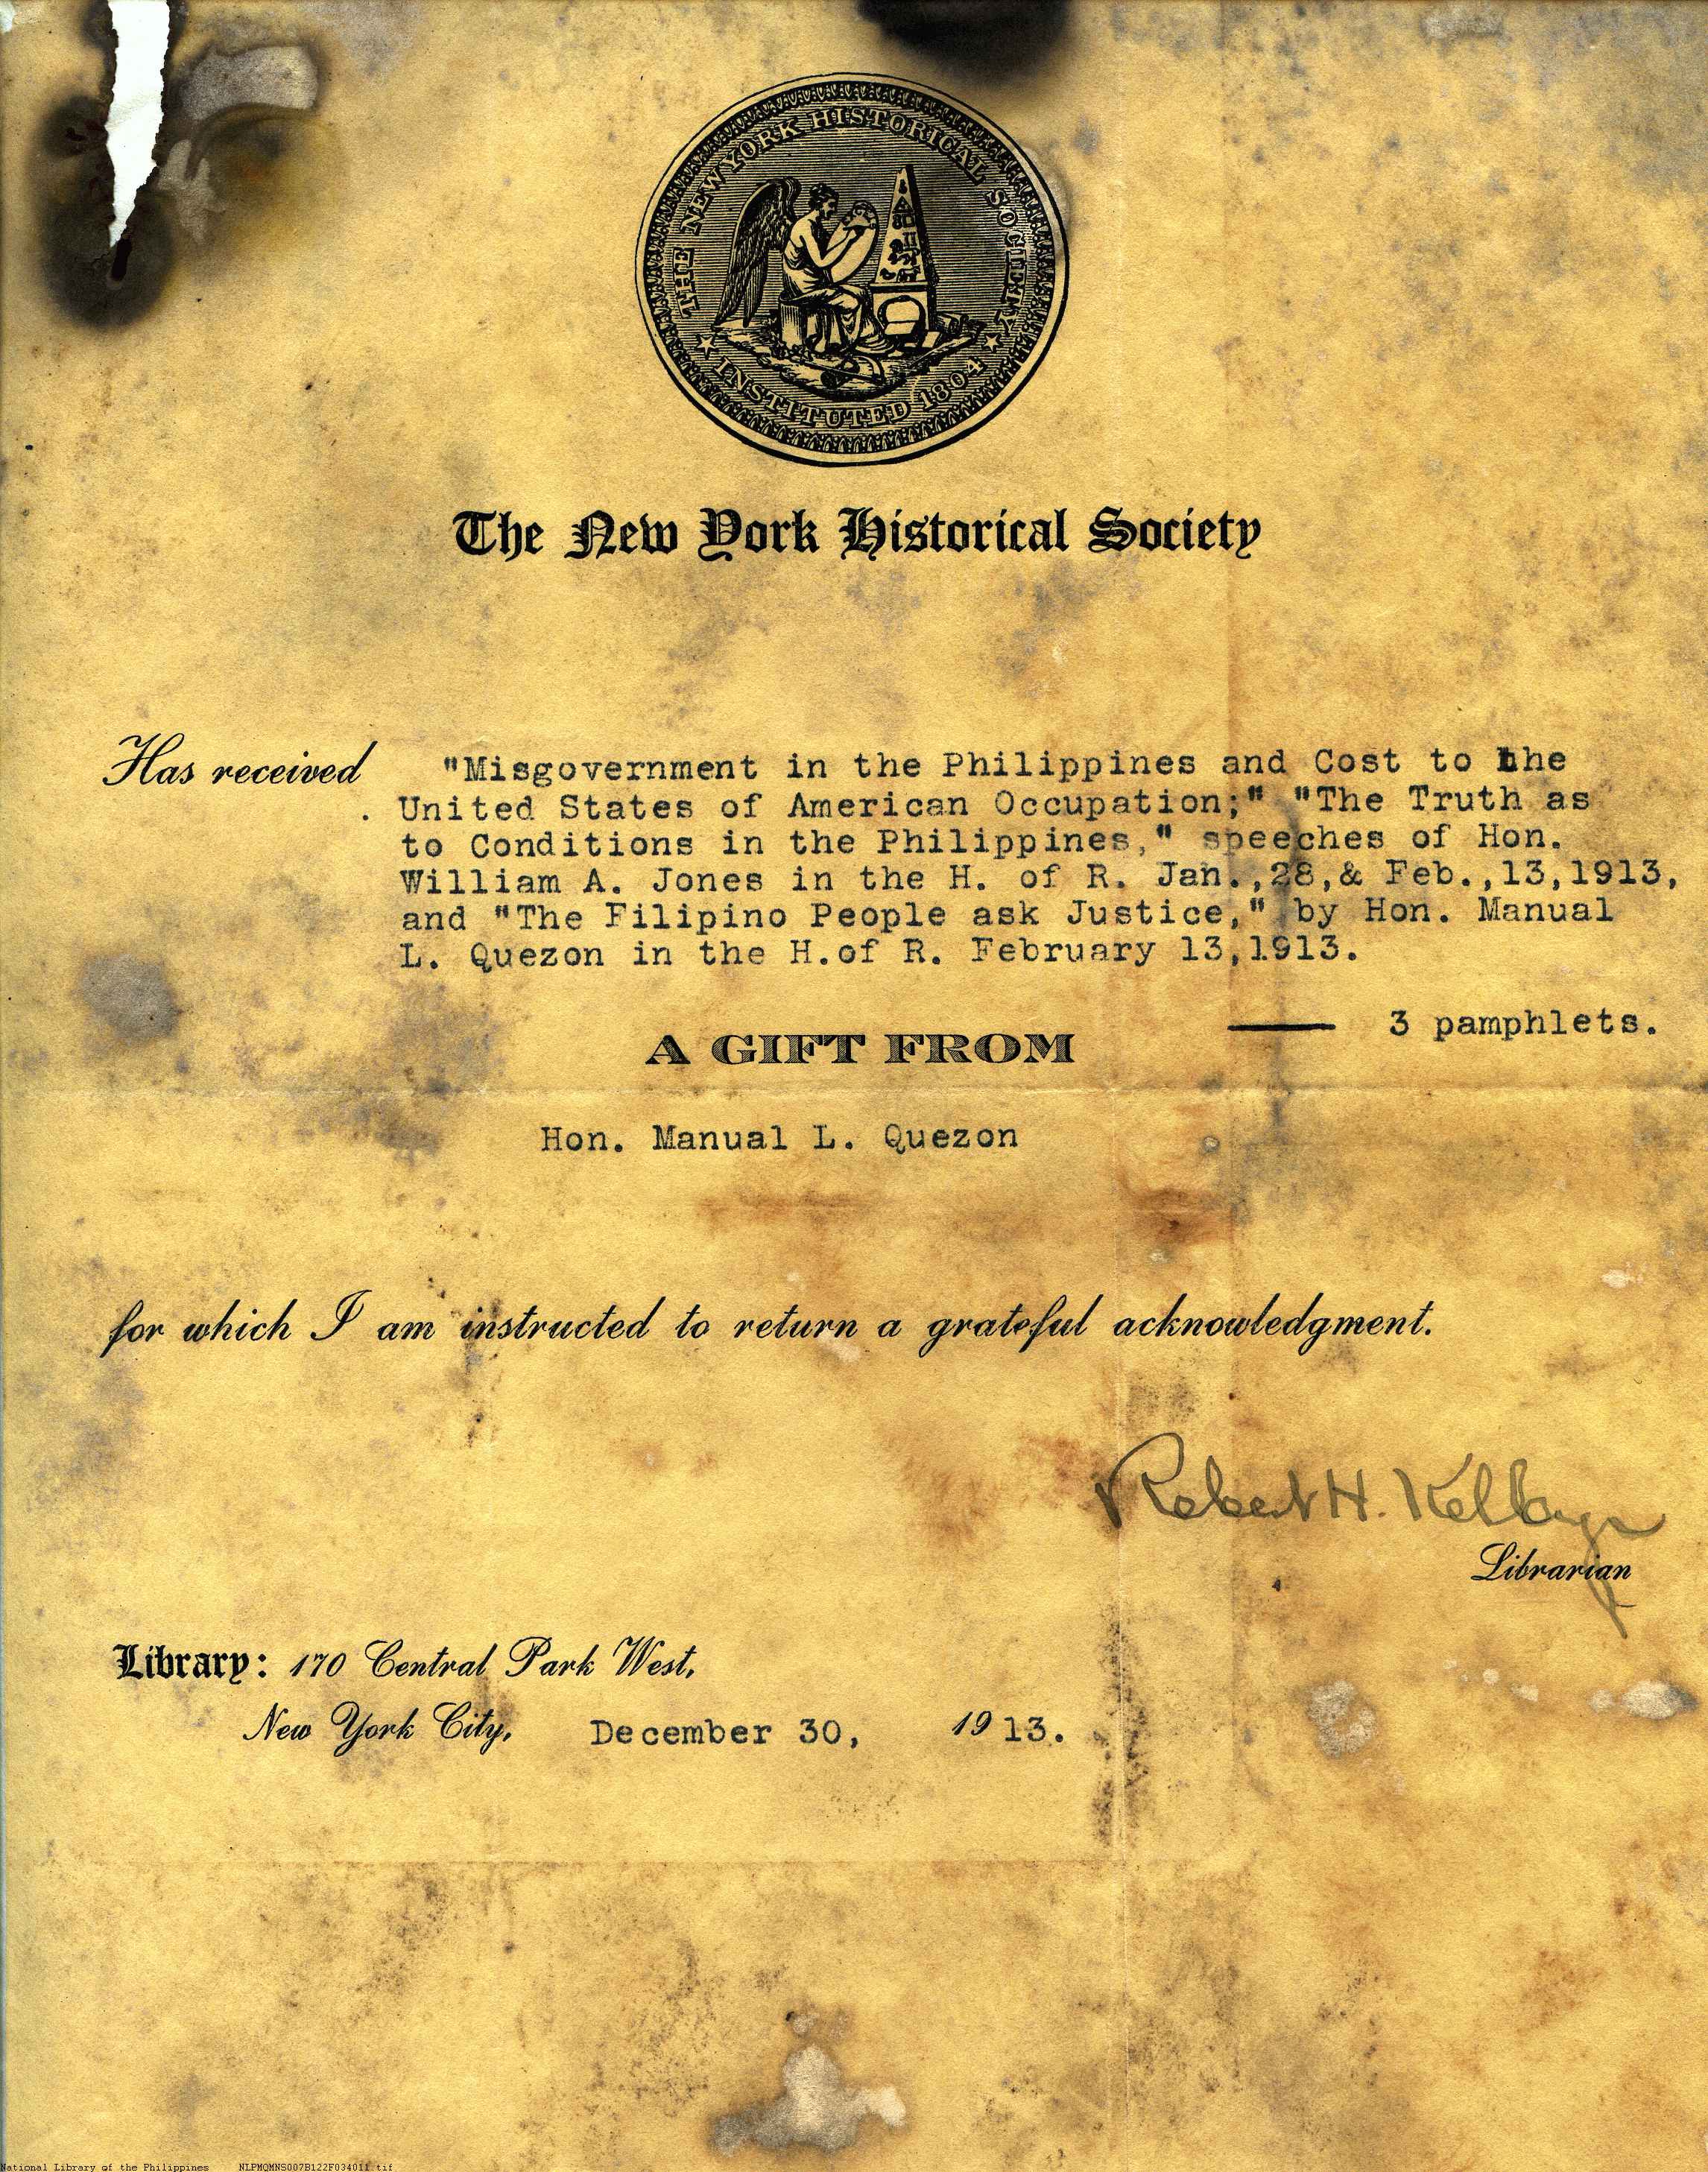 THE NEW YORK HISTORICAL SOCIETY
★ INSTITUTED 1804 ★
The New York Historical Society
Has received "Misgovernment in the Philippines and Cost to the
. United States of American Occupation;" "The Truth as
to Conditions in the Philippines," speeches of Hon.
William A. Jones in the H. of R. Jan.,28,& Feb.,13,1913,
and "The Filipino People ask Justice," by Hon. Manual
L. Quezon in the H.of R. February 13,1913.
— 3 pamphlets.
A GIFT FROM
Hon. Manual L. Quezon
for which I am instructed to return a grateful acknowledgment.
Robert H. Kelby
Librarian
Library: 170 Central Park West,
New York City, December 30, 1913.
National Library of the Philippines NLPMQMNS007B122F034011.tif